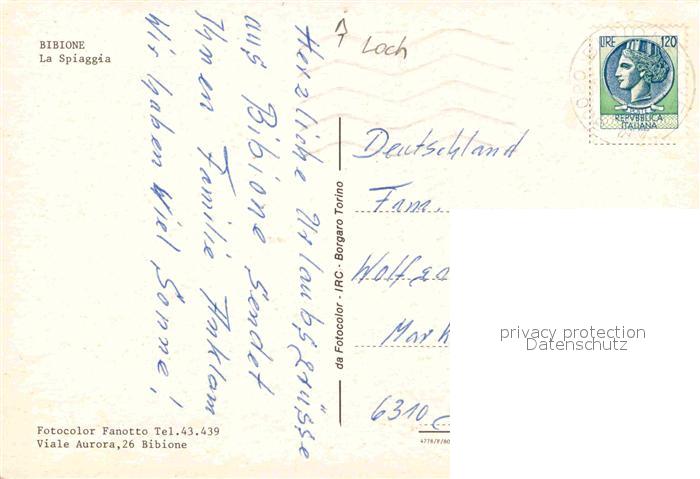 BIBIONE
La Spiaggia
Herzliche Urlaubsgrüsse
aus Bibione sendet
Ihnen Familie Anklam
Wir haben viel Sonne!
Fotocolor Fanotto Tel.43.439
Viale Aurora,26 Bibione
da Fotocolor - IRC - Borgaro Torino
7 Loch
LIRE 120
POSTE
REPVBBLICA
ITALIANA
Deutschland
Fam.
Wolfga
Mark
6310
4778/F/80
privacy protection
Datenschutz